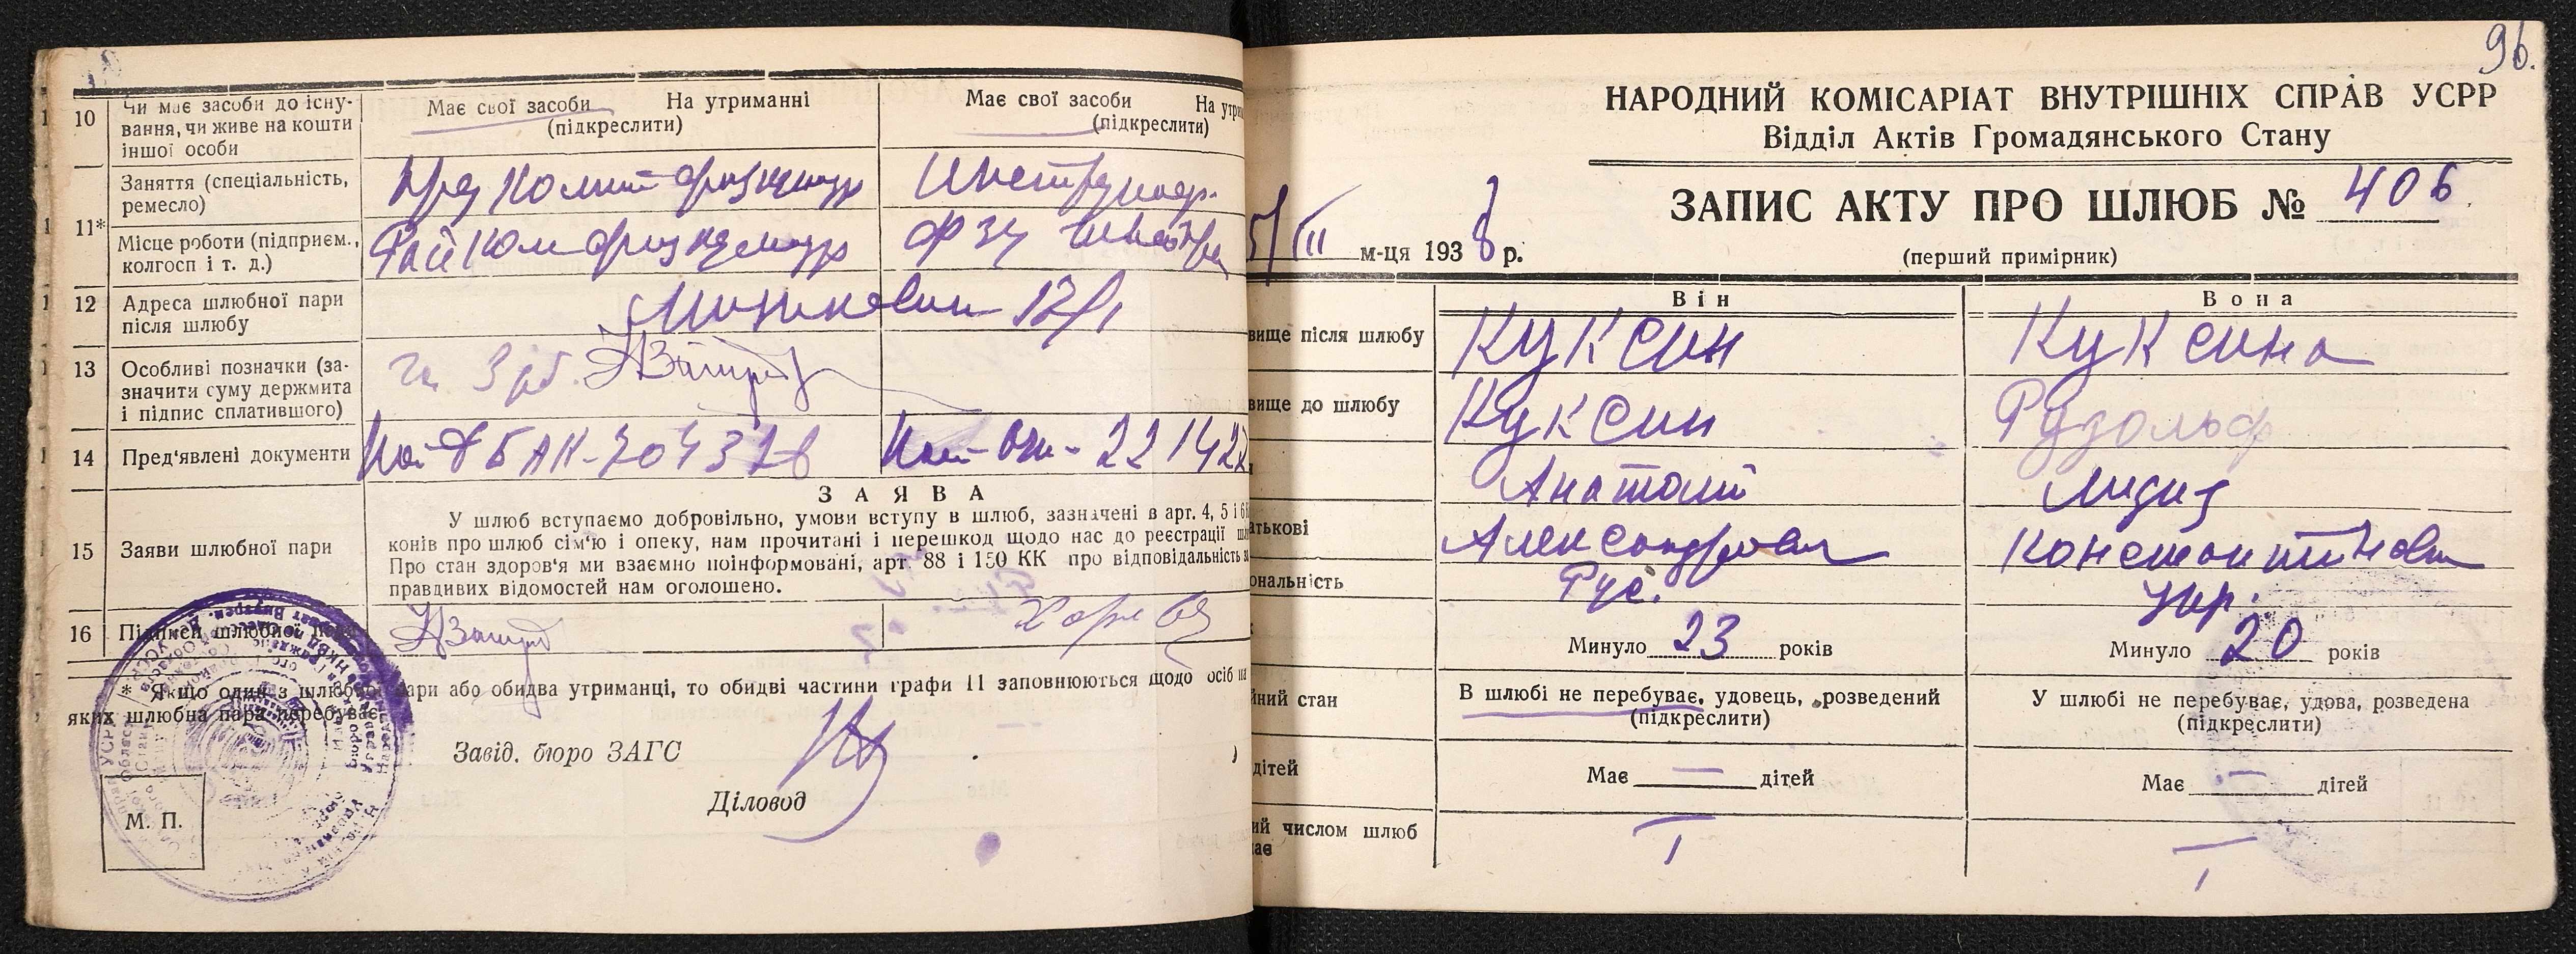 10 Чи має засоби до існу-
вання, чи живе на кошти
іншої особи
Має свої засоби На утриманні
(підкреслити)
Має свої засоби На утрим
(підкреслити)
11*
Заняття (спеціальність,
ремесло)
Пред Комит физкультур
Инструктор.
Місце роботи (підприєм.,
колгосп і т. д.)
Рай Ком физкультур
ФЗУ
12 Адреса шлюбної пари
після шлюбу
12/1
13 Особливі позначки (за-
значити суму держмита
і підпис сплатившого)
3 рб.
14 Пред'явлені документи
БАК-704376
221422
15 Заяви шлюбної пари
ЗАЯВА
У шлюб вступаємо добровільно, умови вступу в шлюб, зазначені в арт. 4, 5 і 6
конів про шлюб сім'ю і опеку, нам прочитані і перешкод щодо нас до реєстрації
Про стан здоров'я ми взаємно поінформовані, арт. 88 і 150 КК про відповідальність за
правдивих відомостей нам оголошено.
16 Підписи шлюбної пари
* Якщо один з шлюбної пари або обидва утриманці, то обидві частини графи 11 заповнюються щодо осіб на
яких шлюбна пара перебуває
Завід. бюро ЗАГС
Діловод
М. П.
96.
НАРОДНИЙ КОМІСАРІАТ ВНУТРІШНІХ СПРАВ УСРР
Відділ Актів Громадянського Стану
ЗАПИС АКТУ ПРО ШЛЮБ № 406
(перший примірник)
5/III м-ця 1938 р.
Він Вона
вище після шлюбу Куксин Куксина
вище до шлюбу Куксин Рудольф
Анатолий Лидия
атькові Александрович Константиновн
ональність Рус. Укр.
Минуло 23 років Минуло 20 років
йний стан
В шлюбі не перебуває, удовець, розведений
(підкреслити)
У шлюбі не перебуває, удова, розведена
(підкреслити)
дітей Має — дітей Має — дітей
ий числом шлюб
ає
I I